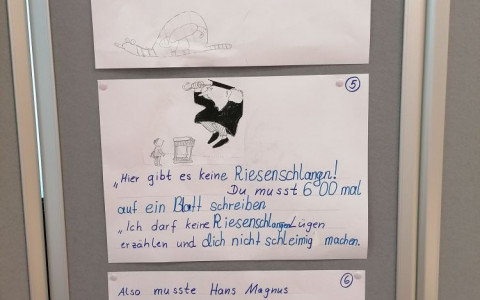 5
„Hier gibt es keine Riesenschlangn!
Du musst 600 mal
auf ein Blatt schreiben
„Ich darf keine Riesenschlangen Lügen
erzählen und dich nicht schleimig machen.
6
Also musste Hans Magnus